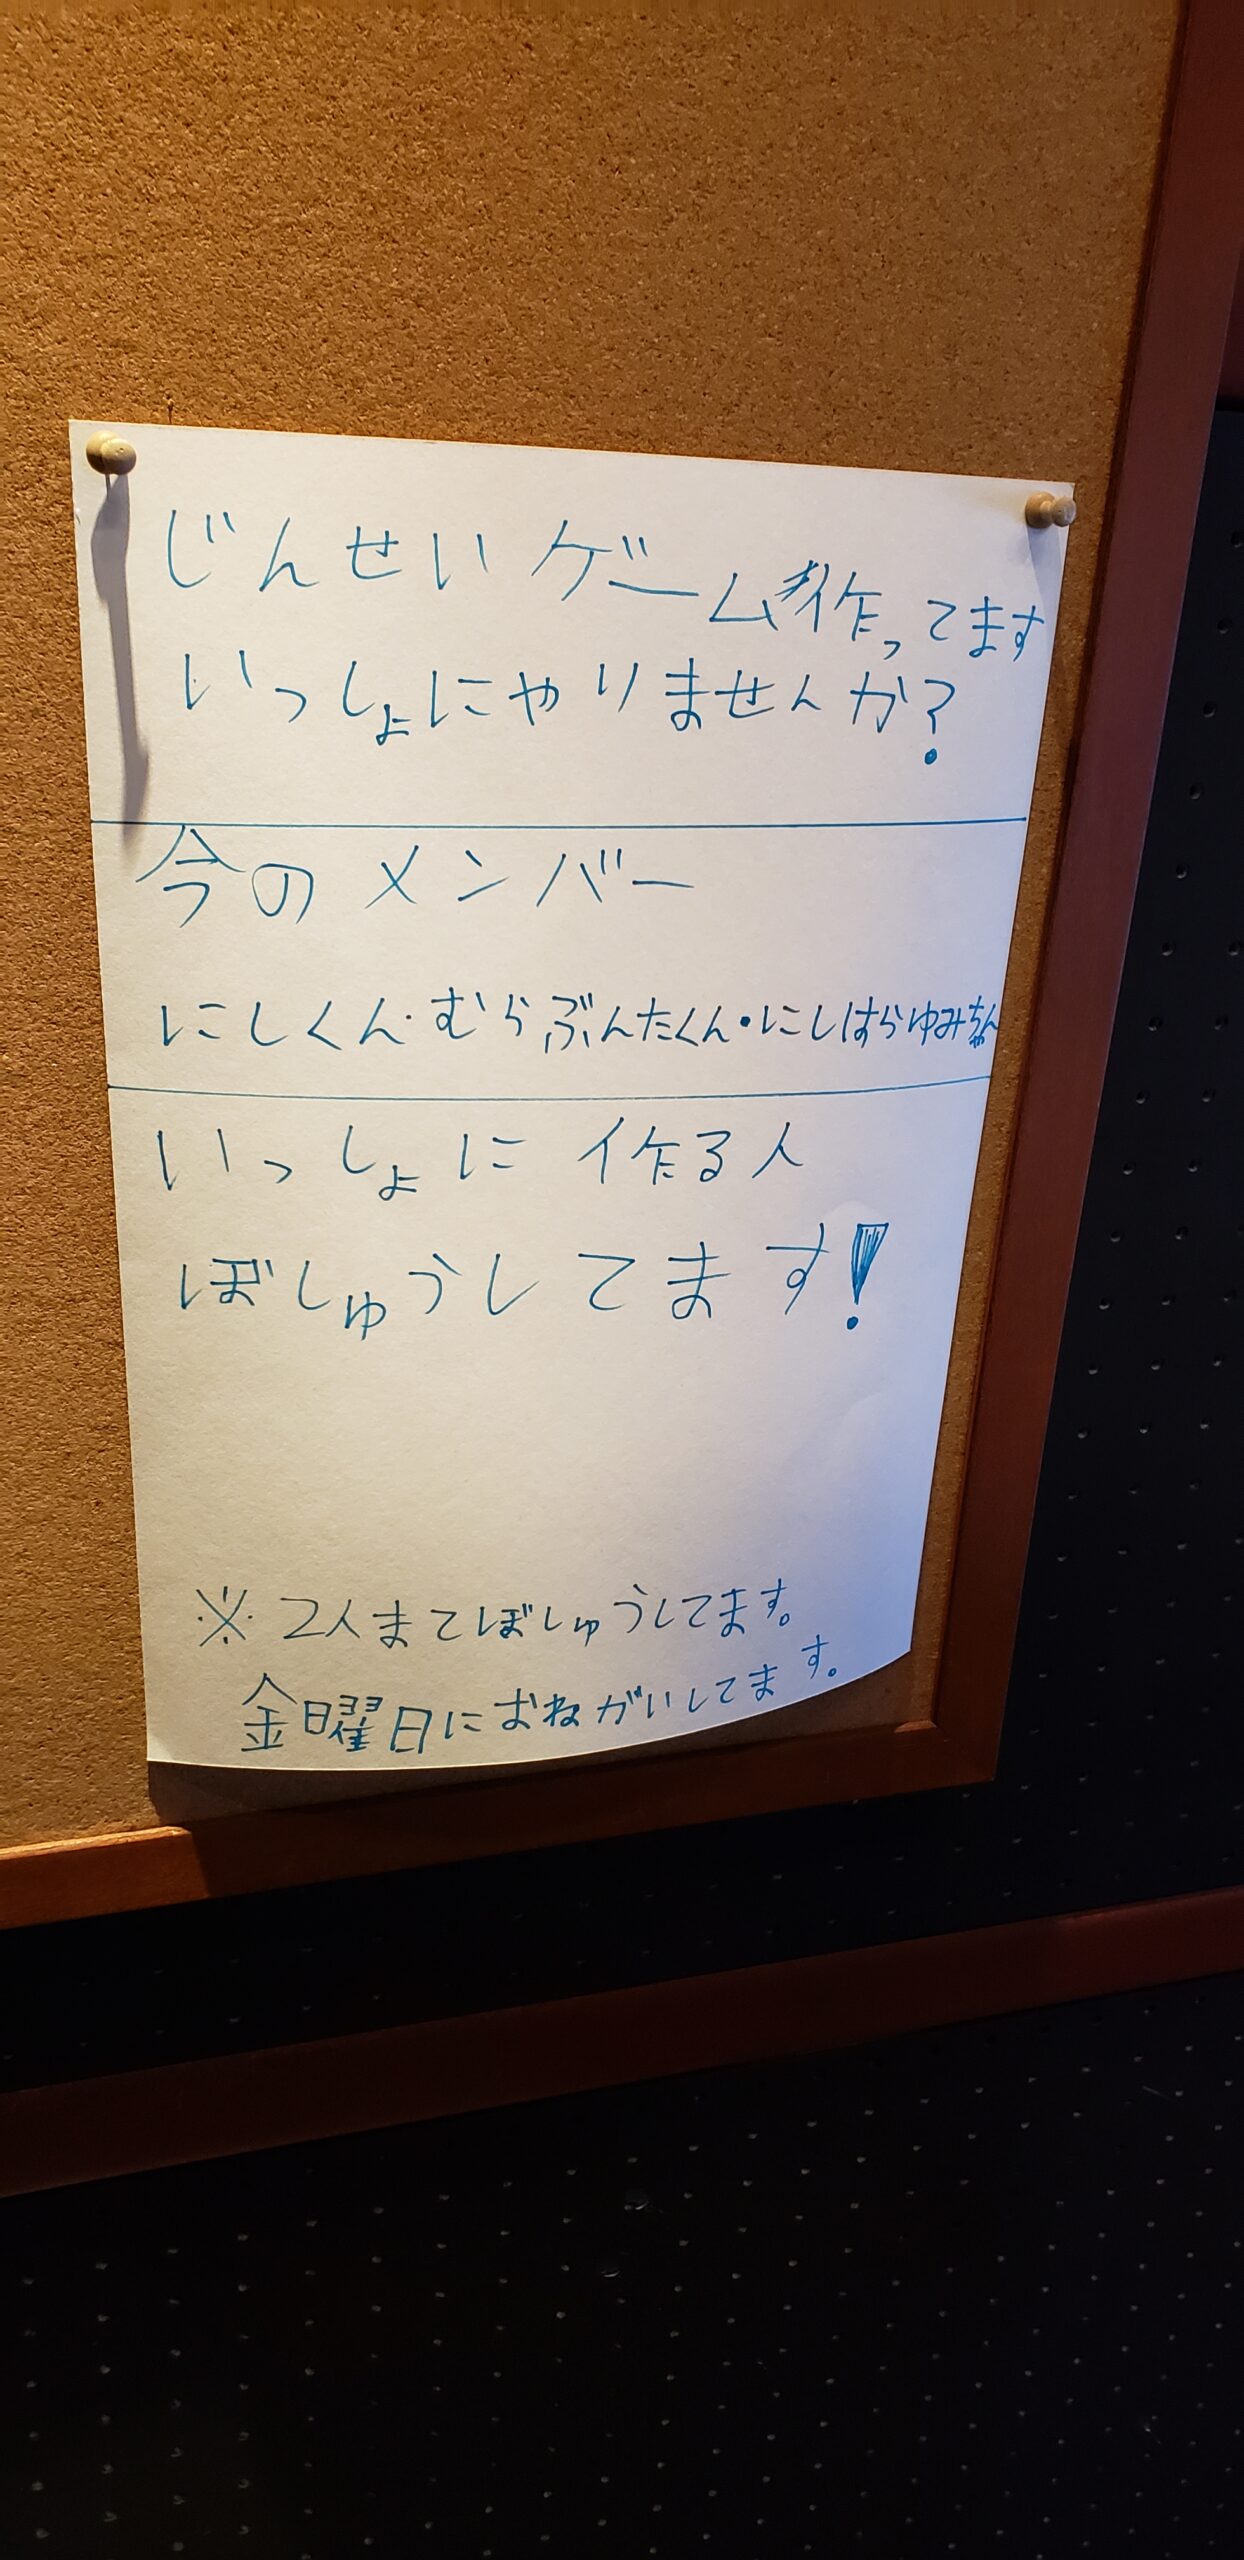 じんせいゲーム作ってます
いっしょにやりませんか?
今のメンバー
にしくん・むらぶんたくん・にしはらゆみちゃん
いっしょに作る人
ぼしゅうしてます!
※2人まてぼしゅうしてます。
金曜日におねがいしてます。